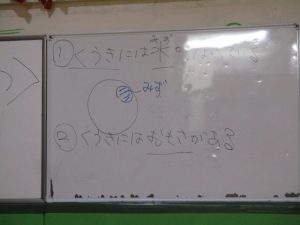 ① くうきには水が
みず
みず
② くうきにはおもさがある